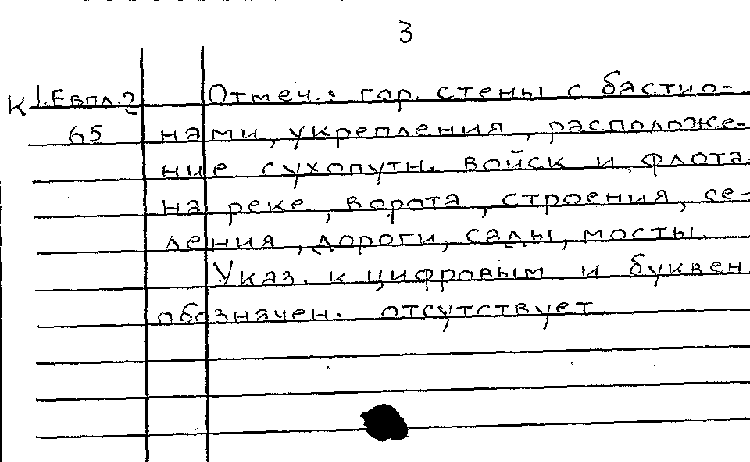 3
К 1.Евпл.2 Отмеч.: гор. стены с бастио-
65 нами, укрепления, расположе-
ние сухопутн. войск и флота
на реке, ворота, строения, се-
ления, дороги, сады, мосты.
Указ. к цифровым и буквен.
обозначен. отсутствует